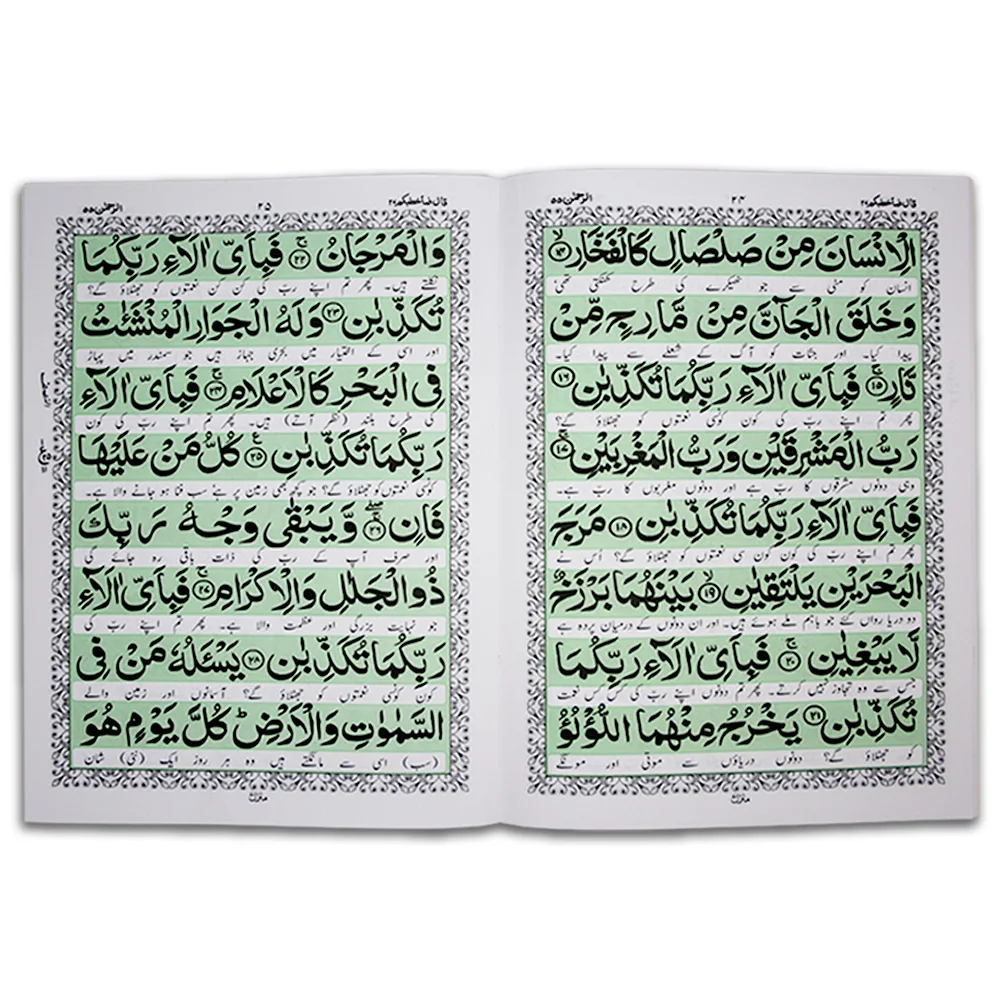 قال فما خطبكم ٢٧ ٤٤ الرحمٰن ٥٥
الۡاِنۡسَانَ مِنۡ صَلۡصَالٍ كَالۡفَخَّارِ ۙ‏ ۝۱۴
انسان کو مٹی سے جو ٹھیکرے کی طرح کھنکتی تھی
وَخَلَقَ الۡجَآنَّ مِنۡ مَّارِجٍ مِّنۡ
پیدا کیا۔ اور جنات کو آگ کے شعلے سے پیدا کیا۔
نَّارٍ‌ۚ ۝۱۵ فَبِاَىِّ اٰلَاۤءِ رَبِّكُمَا تُكَذِّبٰنِ ۝۱۶
پھر تم اپنے رب کی کون کونسی نعمتوں کو جھٹلاؤ گے؟
رَبُّ الۡمَشۡرِقَيۡنِ وَ رَبُّ الۡمَغۡرِبَيۡنِ‌ۚ ۝۱۷
وہی دونوں مشرقوں کا رب ہے اور دونوں مغربوں کا رب ہے۔
فَبِاَىِّ اٰلَاۤءِ رَبِّكُمَا تُكَذِّبٰنِ ۝۱۸ مَرَجَ
پھر تم اپنے رب کی کون کون سی نعمتوں کو جھٹلاؤ گے؟ اُس نے
الۡبَحۡرَيۡنِ يَلۡتَقِيٰنِۙ ۝۱۹ بَيۡنَهُمَا بَرۡزَخٌ
دو دریا رواں کئے جو باہم ملے ہوئے ہیں۔ اور ان دونوں کے درمیان پردہ ہے
لَّا يَبۡغِيٰنِ‌ۚ ۝۲۰ فَبِاَىِّ اٰلَاۤءِ رَبِّكُمَا
جس سے وہ تجاوز نہیں کرتے۔ پھر تم دونوں اپنے رب کی کس کس نعمت
تُكَذِّبٰنِ ۝۲۱ يَخۡرُجُ مِنۡهُمَا اللُّـؤۡلُـؤُ
کو جھٹلاؤ گے؟ دونوں دریاؤں سے موتی اور مونگے
منزل ٧
قال فما خطبكم ٢٧ ٤٥ الرحمٰن ٥٥
وَالۡمَرۡجَانُ‌ۚ ۝۲۲ فَبِاَىِّ اٰلَاۤءِ رَبِّكُمَا
نکلتے ہیں۔ پھر تم اپنے رب کی کن کن نعمتوں کو جھٹلاؤ گے؟
تُكَذِّبٰنِ ۝۲۳ وَلَهُ الۡجَوَارِ الۡمُنۡشَئٰتُ
اور اسی کے اختیار میں بحری جہاز ہیں جو سمندر میں پہاڑ
فِى الۡبَحۡرِ كَالۡاَعۡلَامِ‌ۚ ۝۲۴ فَبِاَىِّ اٰلَاۤءِ
کی طرح بلند (نظر آتے) ہیں۔ پھر تم اپنے رب کی کون
رَبِّكُمَا تُكَذِّبٰنِ ۝۲۵ كُلُّ مَنۡ عَلَيۡهَا
کونسی نعمتوں کو جھٹلاؤ گے؟ جو کچھ بھی زمین پر ہے سب فنا ہو جانے والا ہے۔
فَانٍ ۝۲۶ وَّيَبۡقٰى وَجۡهُ رَبِّكَ
اور صرف آپ کے رب کی ذات باقی رہ جائے گی
ذُو الۡجَلٰلِ وَالۡاِكۡرَامِ‌ۚ ۝۲۷ فَبِاَىِّ اٰلَاۤءِ
جو نہایت بزرگی اور عظمت والا ہے۔ پھر تم اپنے رب کی
رَبِّكُمَا تُكَذِّبٰنِ ۝۲۸ يَسۡـَٔلُهٗ مَنۡ فِى
کون کونسی نعمتوں کو جھٹلاؤ گے؟ آسمانوں اور زمین والے
السَّمٰوٰتِ وَالۡاَرۡضِ‌ؕ كُلَّ يَوۡمٍ هُوَ
(سب) اسی سے مانگتے ہیں وہ ہر روز ایک (نئی) شان
منزل ٧